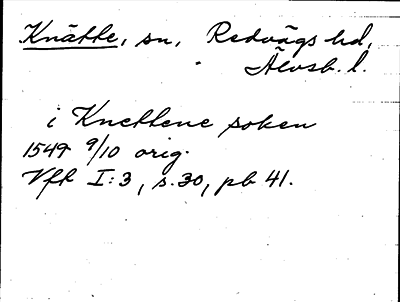 Knätte, sn, Redvägs hd,
Älvsb. l.
i Knettene soken
1549 9/10 orig.
Vfk I:3, s. 30, pb 41.